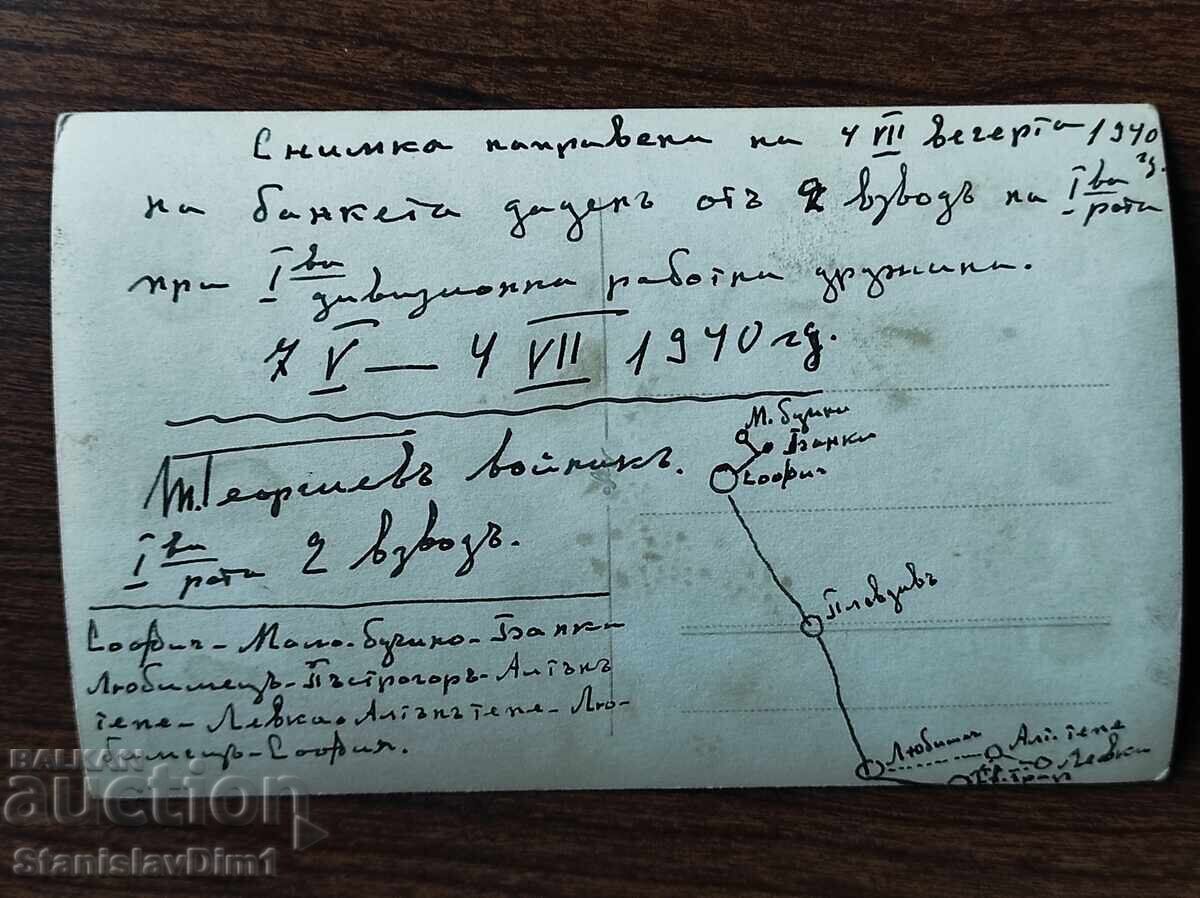 Снимка направена на 4 VII вечерта 1940 гд.
на банкета даденъ отъ 2 взводъ на I ва рота
при I ва дивизионна работна дружина.
7 V — 4 VII 1940 гд.
Георгиевъ войникъ.
I ва рота 2 взводъ.
София - Мало-Бучино - Банки
Любимецъ - Пъстрогоръ - Алтънъ
тепе - Левка - Алтънъ тепе - Лю-
бимецъ - София.
М. Бучино
Банки
София
Пловдивъ
Любимец
Алт. тепе
Левка
BALKAN
auction
StanislavDim1